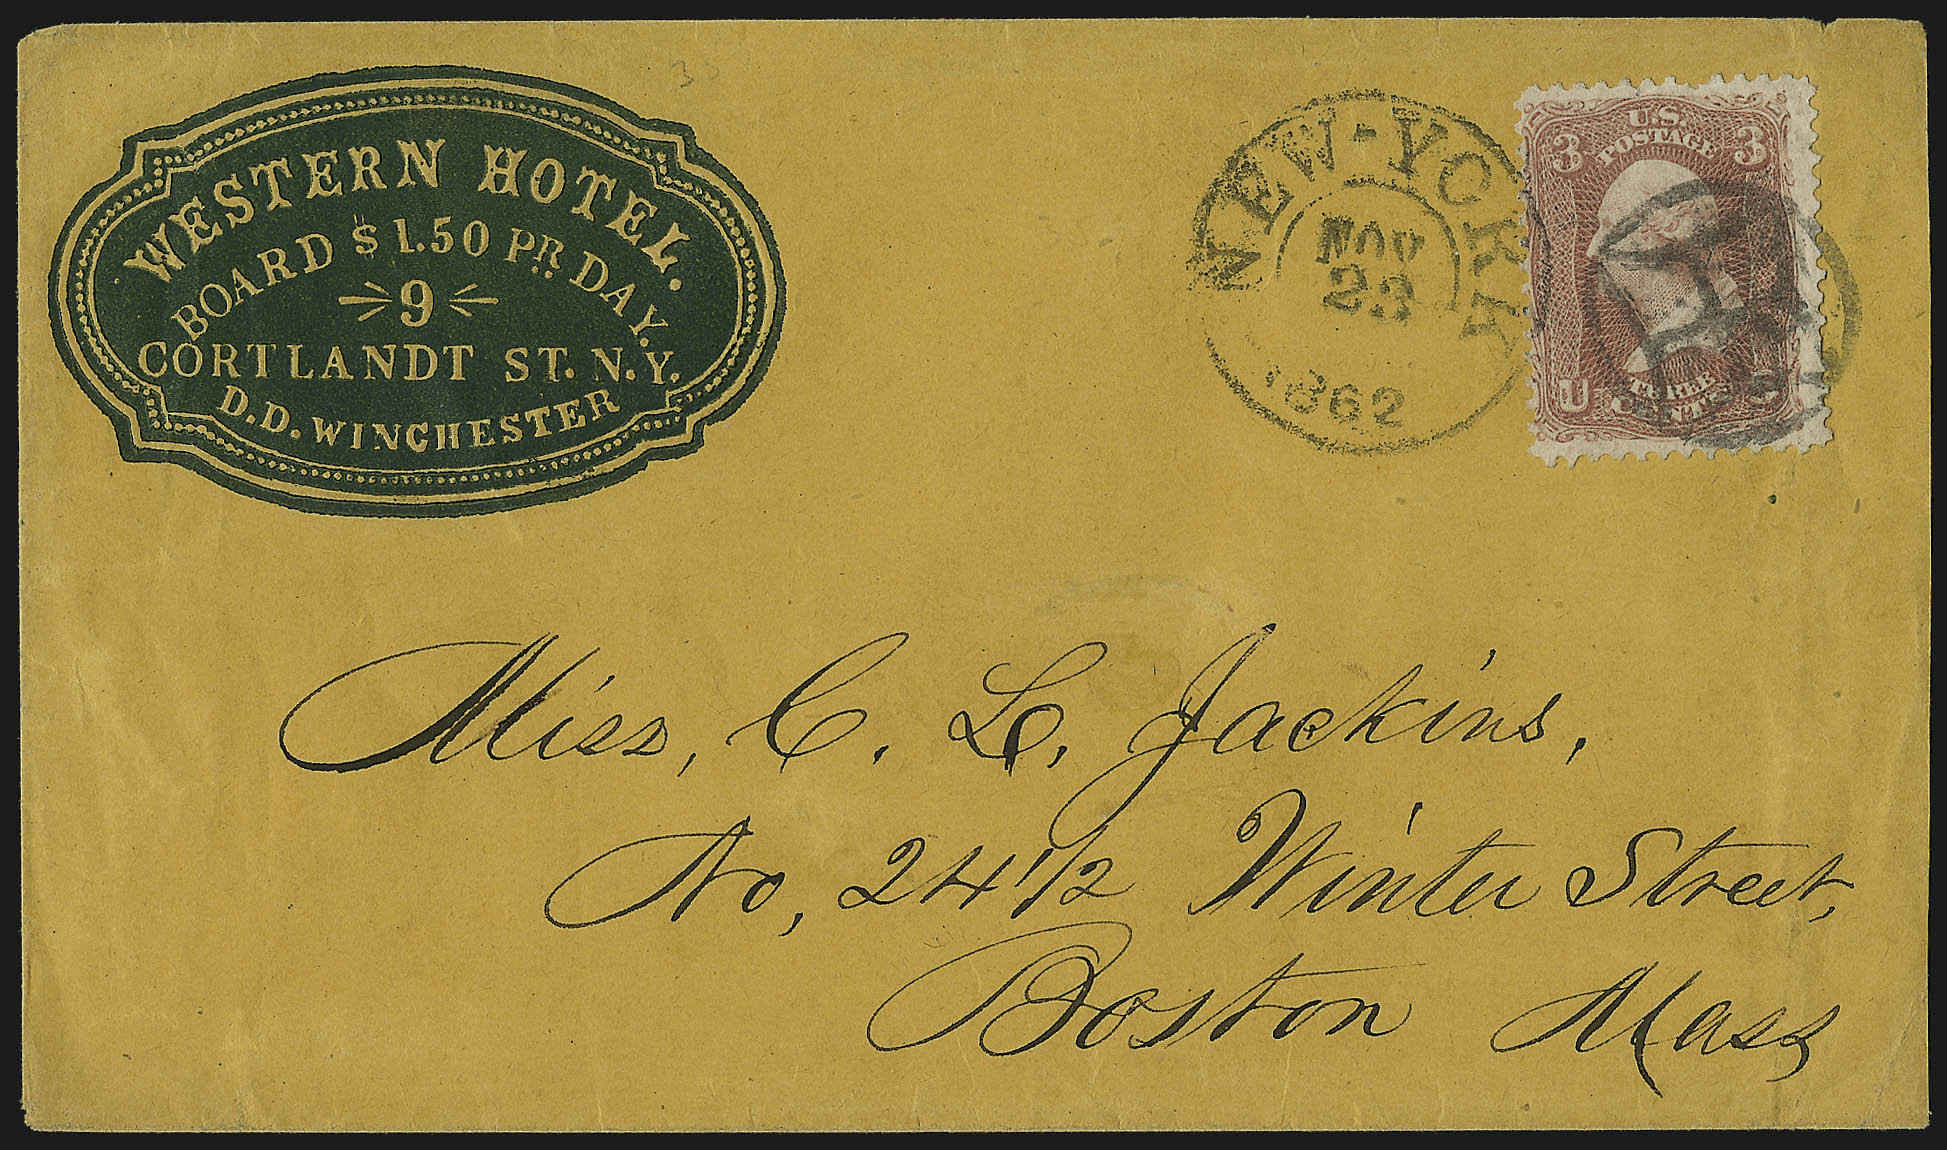 WESTERN HOTEL.
BOARD $1.50 PR. DAY.
9
CORTLANDT ST. N.Y.
D.D. WINCHESTER
NEW-YORK
NOV
23
1862
U.S.
POSTAGE
3 3
U
THREE
CENTS
Miss, C. L. Jackins,
No, 24 1/2 Winter Street,
Boston Mass